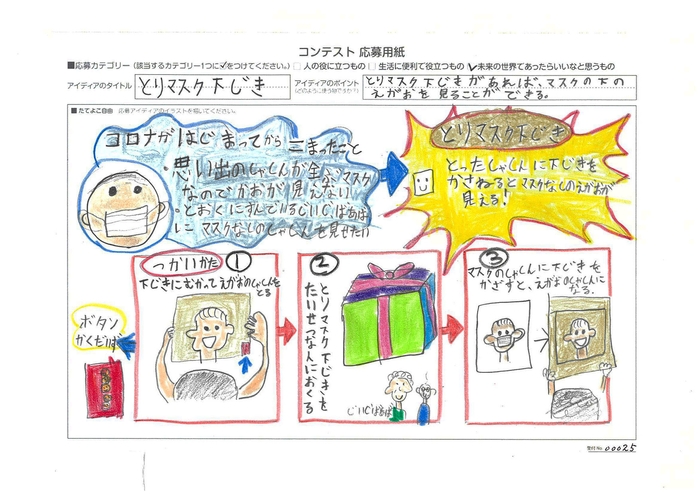 コンテスト 応募用紙
■応募カテゴリー（該当するカテゴリー1つに✓をつけてください。） □ 人の役に立つもの □ 生活に便利で役立つもの ☑ 未来の世界であったらいいなと思うもの
アイディアのタイトル
とりマスク下じき
アイディアのポイント
とりマスク下じきがあれば、マスクの下の
えがおを見ることができる。
■たてよこ自由 応募アイディアのイラストを描いてください。
コロナがはじまってからこまったこと
・思い出のしゃしんが全ぶマスク
なのでかおが見えない
・とおくにすんでいるじいじばあば
に マスクなしのしゃしんを見せたい
とりマスク下じき
とったしゃしんに下じきを
かさねるとマスクなしのえがおが
見える!
つかいかた ①
下じきにむかってえがおのしゃしんを
とる
ボタン
かくだいず
②
とりマスク下じきを
たいせつな人におくる
じいじばあば
③
マスクのしゃしんに下じきを
かざすと、えがおのしゃしんに
なる.
受付No. 00025